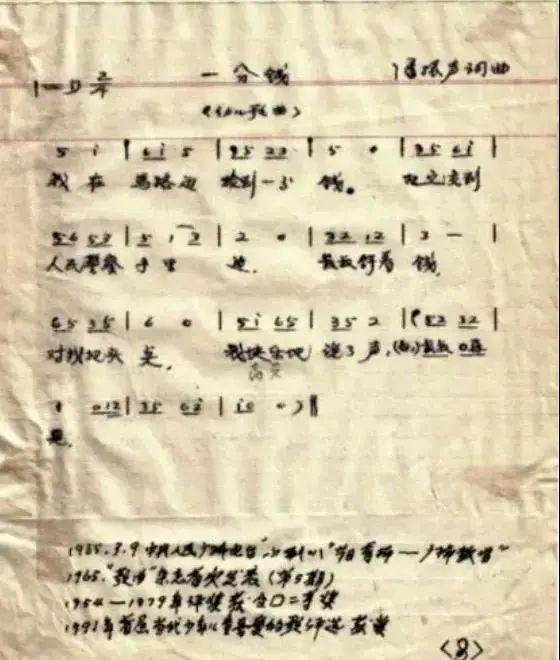 1=D 2/4
一分钱
潘振声词曲
(幼儿歌曲)
5 i | 6i 5 | 35 23 | 5 0 | 35 6i |
我在 马路边 捡到一分 钱。 把它交到
56 53 | 5 1 3 | 2 0 | 32 12 | 3 — |
人民警察 手里 边. 叔叔拿着 钱,
65 35 | 6 0 | 5i 65 | 35 2 | 52 32 |
对我把头 点, 我快乐地 说了声, 叔叔 再
高兴
1 012 | 35 6i | i0 0 ) ‖
见.
1965. 中央人民广播电台
1965."歌曲"杂志首次发表(第5期)
1954—1979年评奖获 全国二等奖
1991年首届当代少年儿童喜爱的歌 评选 获奖
<8>